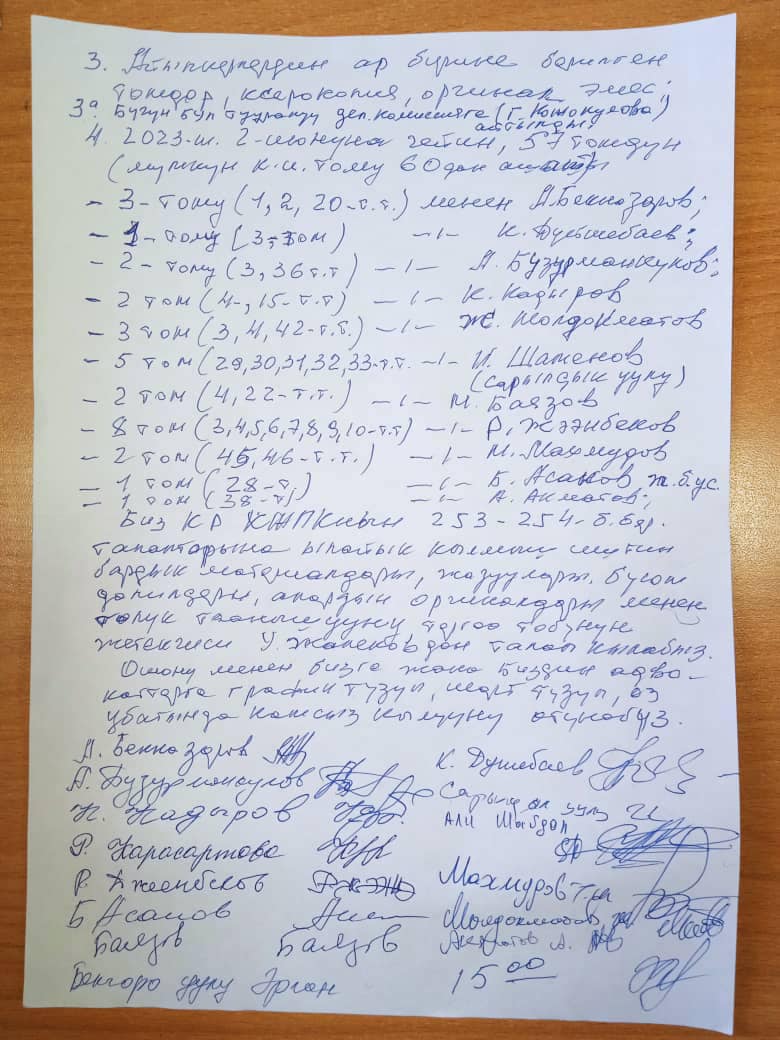 3. Айыпкерлердин ар бирине берилген
томдор, ксерокопия, оргинал эмес;
3а Бүгүн бул тууралуу деп. комиссияга (Г. Кожокулова)
айтылды.
4. 2023-ж. 2-июнуна чейин, 57 томдун
(мүмкүн к.и. тому 60дан ашат)
- 3-тому (1, 2, 20-т.т.) менен А. Бекназаров;
- 1-тому (3-том) -ı- К. Дүйшебаев;
- 2-тому (3, 36 т.т) -ı- А. Бузурманкулов;
- 2 том (4-, 15-т.т) -ı- К. Кадыров
- 3 том (3, 4, 42-т.т.) -ı- Ж. Молдокматов
- 5 том (29, 30, 31, 32, 33-т.т. -ı- И. Шаменов
(сарылдык уулу)
- 2 том (4, 22-т.т.) -ı- М. Баязов
- 8 том (3,4,5,6,7,8,9,10-т.т) -ı- Р. Жээнбеков
- 2 том (45, 46-т.т.) -ı- М. Махмудов
- 1 том (28-т.) -ı- Б. Асанов ж.б.ус.
- 1 том (38-т) -ı- А. Акматов;
Биз КР ЖПКнын 253-254-б.бер.
талаптарына ылайык кылмыш иштин
бардык материалдары, жазуулары, буюм
далилдери, алардын оргиналдары менен
толук таанышууну тергөө тобунун
жетекчиси У. Жапековдон талап кылабыз.
Ошону менен бизге жана биздин адво-
каттарга график түзүп, шарт түзүп, өз
убагында камсыз кылууну өтүнөбүз.
А. Бекназаров
К. Дүйшебаев
А. Бузурманкулов
К. Кадыров
Али Шабдан
Р. Карасартова
Р. Жээнбеков
Махмудов
Б Асанов
Молдокматов
Баязов Баязов
Акматов А.
Бекгоро уулу Эрлан
15 00